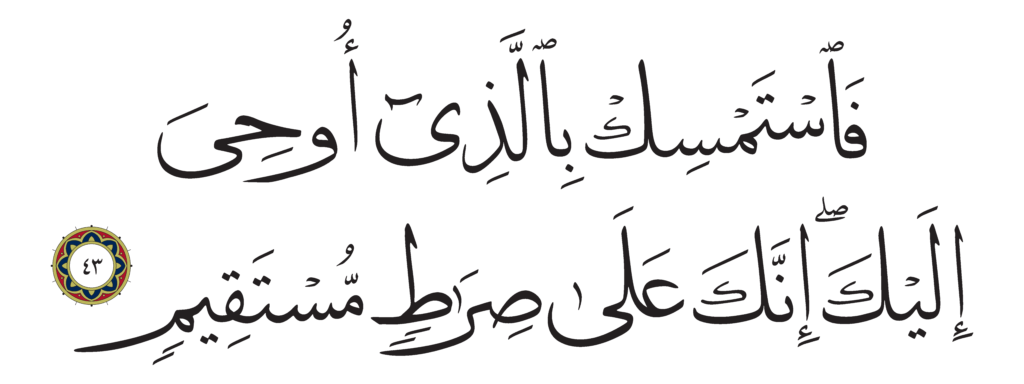 فَٱسْتَمْسِكْ بِٱلَّذِىٓ أُوحِىَ
إِلَيْكَ ۖ إِنَّكَ عَلَىٰ صِرَٰطٍ مُّسْتَقِيمٍ ٤٣